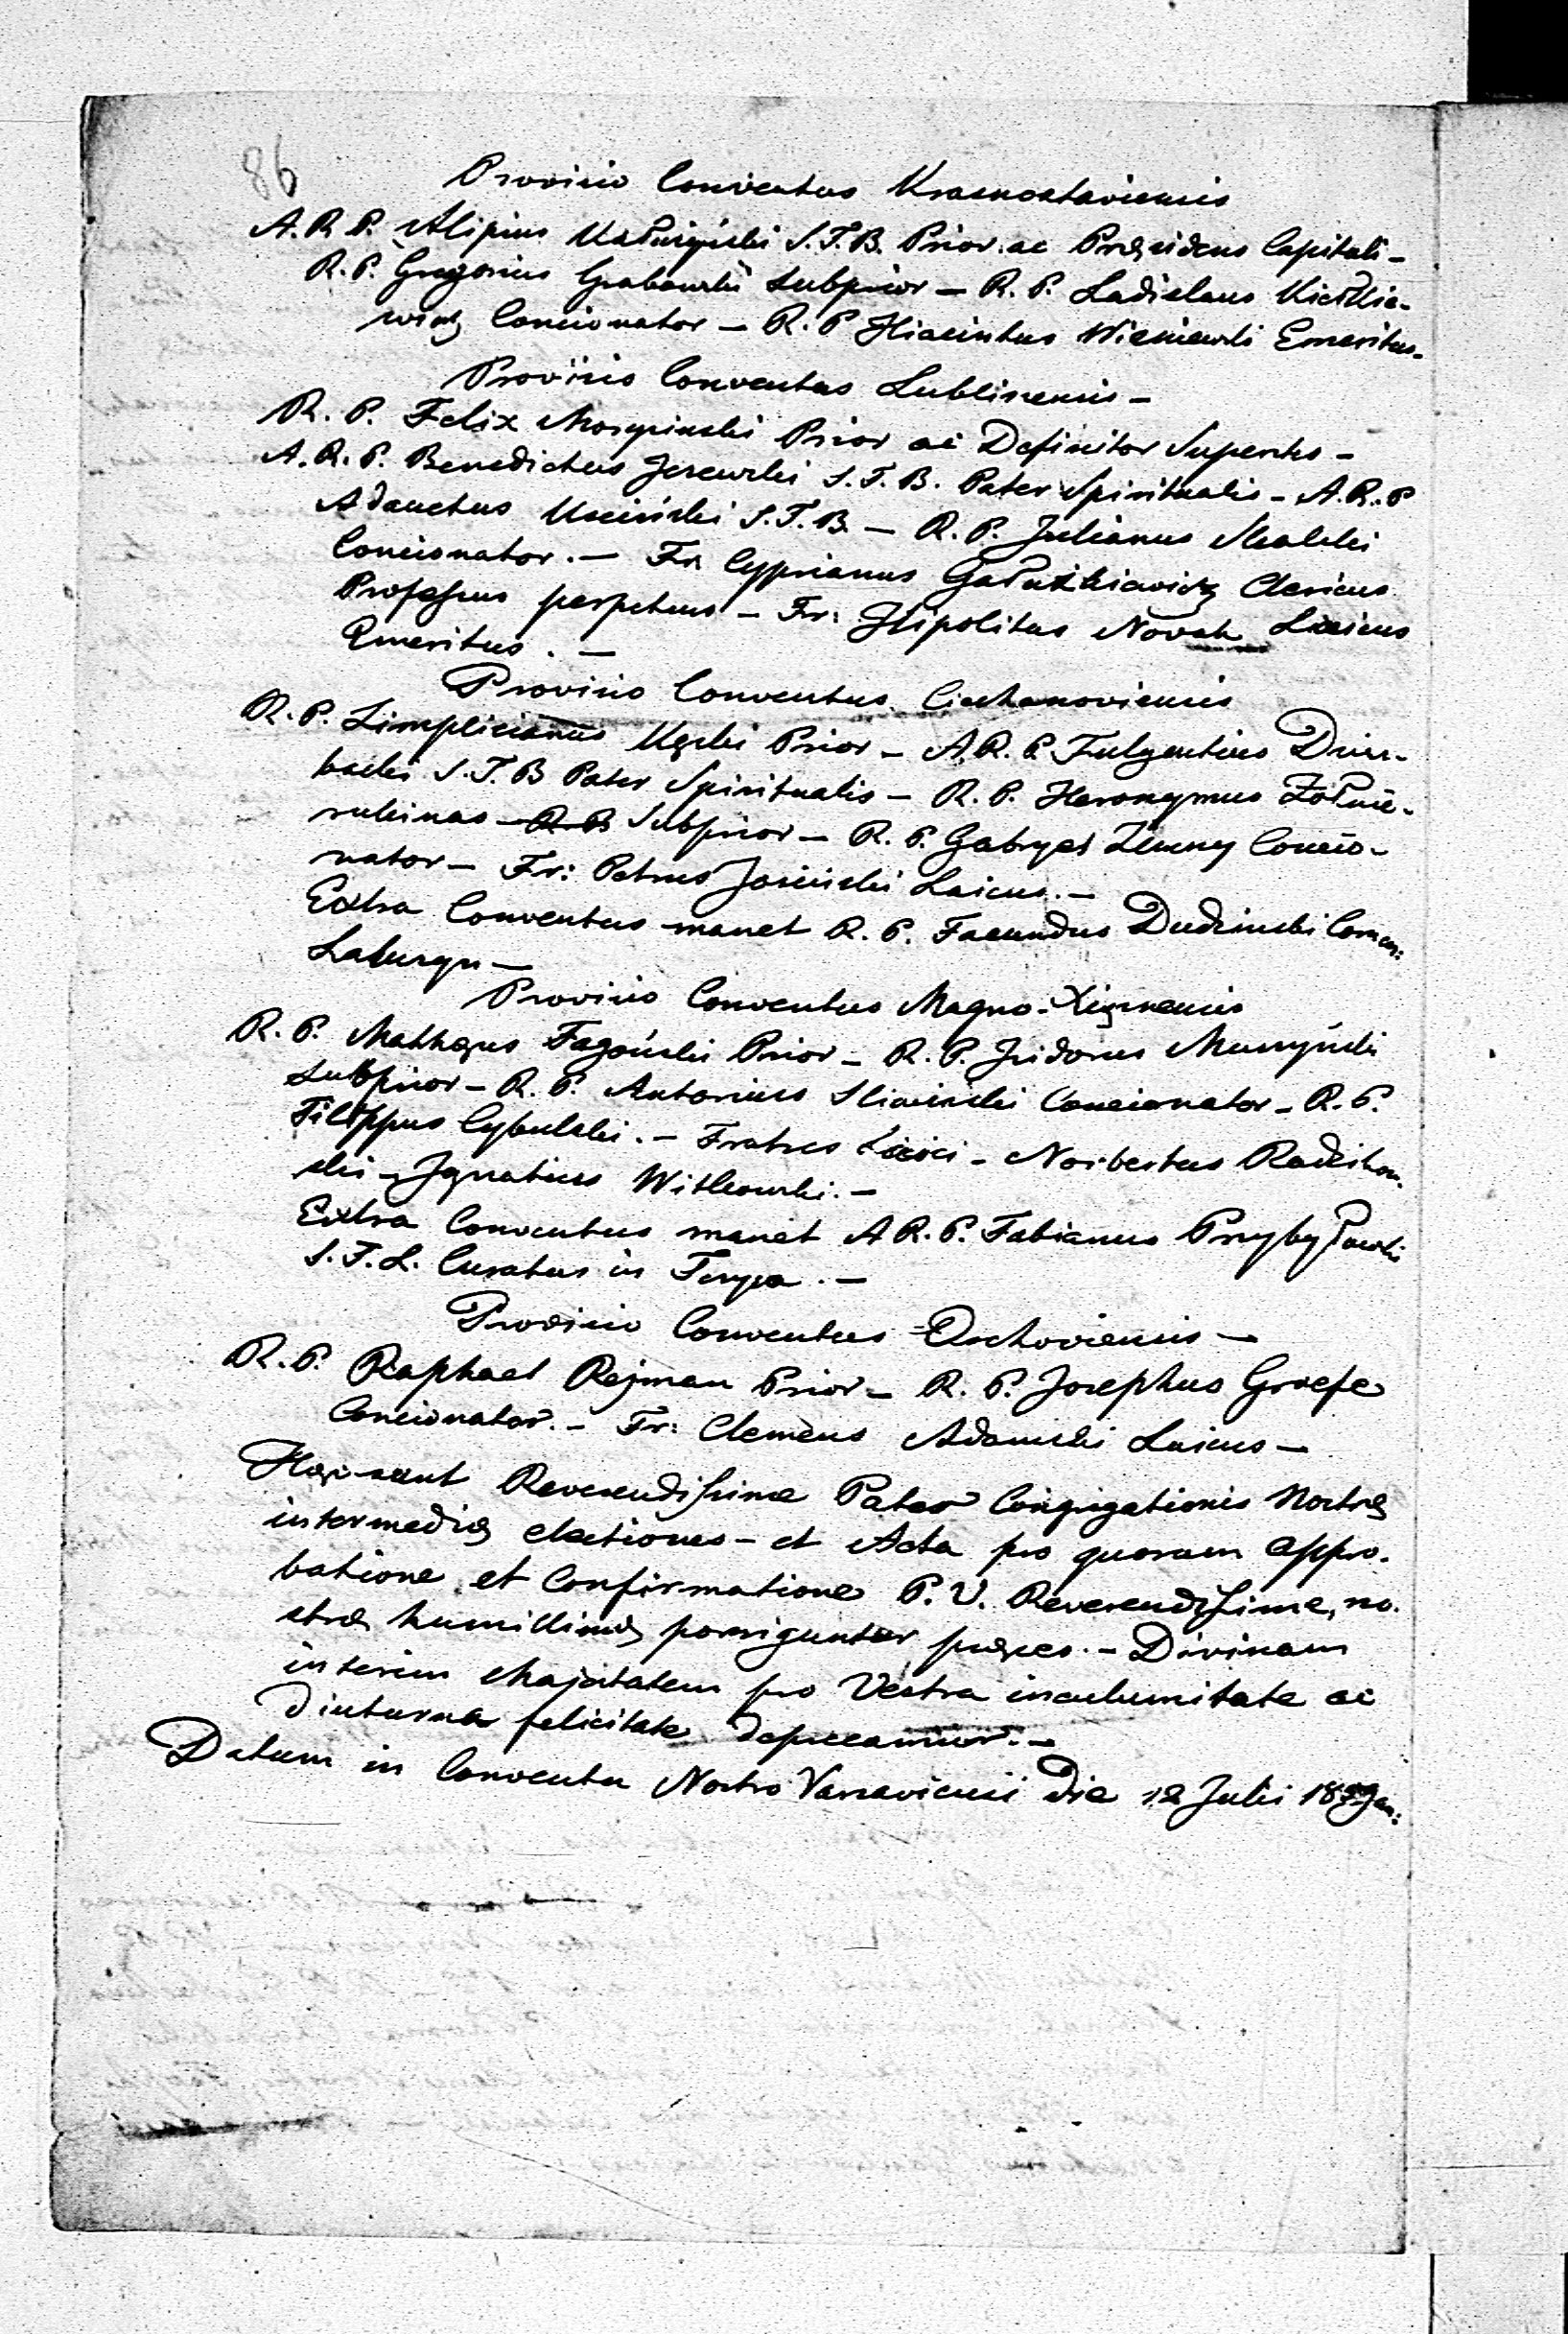 86
Provisio Conventus Krasnostaviensis
A. R. P. Alipius Kałużyński S. T. B. Prior ac Præsidens Capituli –
R. P. Gregorius Grabowski Subprior – R. P. Ladislaus
Concionator – R. P. Hiacinthus Wisniewski Emeritus –
Provisio Conventus Lublinensis –
R. P. Felix Prior ac Definitor Supentus –
A. R. P. Benedictus Jerewski S. T. B. Pater Spiritualis – A. R. P.
Adauctus S. T. B. – R. P. Julianus Skalski
Concionator. – Fr. Cyprianus Gałuszkiewicz Clericus
Professus perpetuus – Fr: Hipolitus Novak Laicus
Emeritus. –
Provisio Conventus Ciechanoviensis
R. P. Simplicianus Kęski Prior – A. R. P. Fulgentius Dzier-
backi S. T. B Pater Spiritualis – R. P. Heronymus Żołnie-
rukinas – R. P. Subprior – R. P. Gabryel Zimny Concio-
nator – Fr: Petrus Josiński Laicus. –
Extra Conventus manet R. P. Facundus Dudzinski Comen:
–
Provisio Conventus Magno-Xiąznensis
R. P. Mathæus Fagoński Prior – R. P. Isidorus Murzyński
Subprior – R. P. Antonius Sliwinski Concionator – R. P.
Filippus Cybulski. – Fratres Laici – Norbertus Radzikow-
ski – Ignatius Witkowski. –
Extra Conventus manet A R. P. Fabianus Przybyłowski
S. T. L. Curatus in –
Provisio Conventus Orchoviensis –
R. P. Raphael Rejman Prior – R. P. Josephus Graefe
Concionator. – Fr: Clemens Adamski Laicus –
Hæ sunt Reverendissime Pater Congregationis Nostræ
intermediæ electiones – et Acta pro quorum appro-
batione et Confirmatione P. V. Reverendissime, no-
stræ humillimæ porriguntur preces. – Divinam
interim Majestatem pro Vestra incolumitate ac
diuturna felicitate deprecamur. –
Datum in Conventu Nostro Varsaviensi die 12 Julii